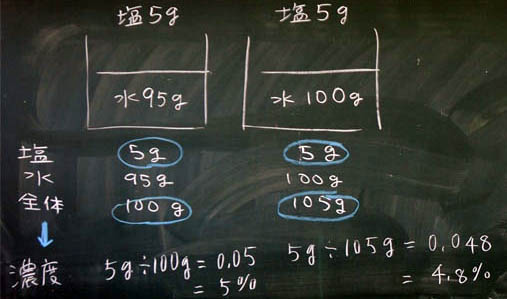 塩5g 塩5g
水95g 水100g
塩 5g 5g
水 95g 100g
全体 100g 105g
濃度 5g÷100g=0.05 5g÷105g=0.048
=5% =4.8%